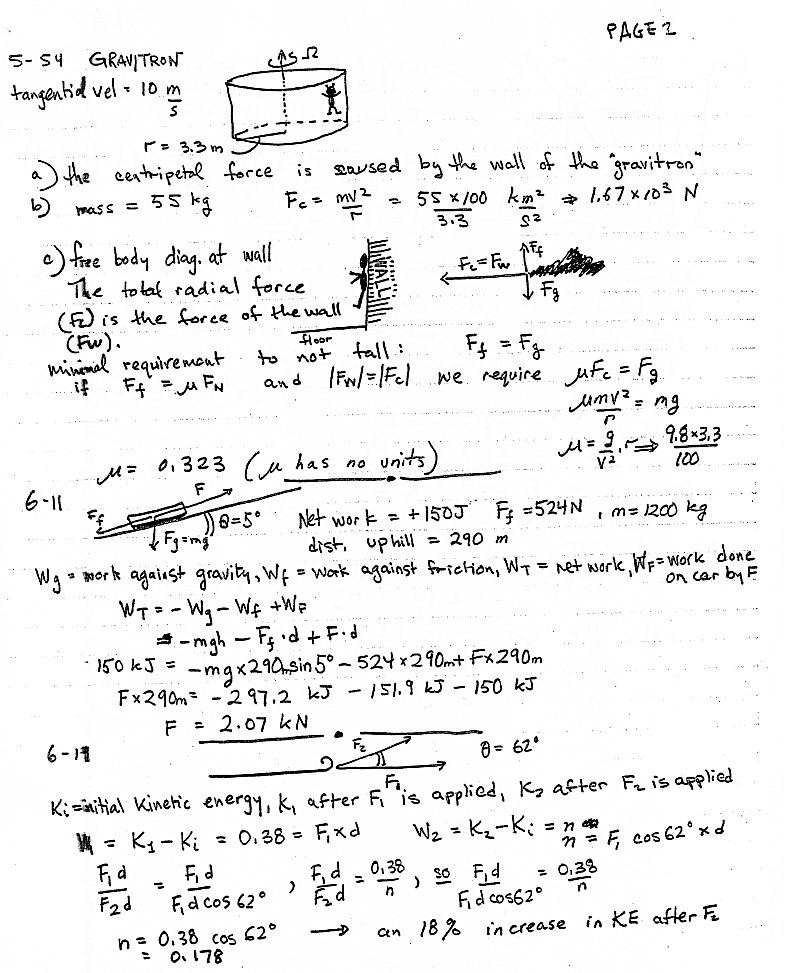 PAGE 2
5-54 GRAVITRON
Ω
tangential vel = 10 m/s
r = 3.3 m
a) the centripetal force is caused by the wall of the "gravitron"
b) mass = 55 kg Fc = mv²/r = 55 x 100/3.3 km²/s² ⇒ 1.67 x 10³ N
c) free body diag. at wall
WALL
Fc = Fw
Ff
Fg
The total radial force
(Fc) is the force of the wall
(Fw).
floor
minimal requirement to not fall: Ff = Fg
if Ff = μ FN and |Fw| = |Fc| we require μFc = Fg
μmv²/r = mg
μ = g/v² · r ⇒ 9.8×3.3/100
μ = 0.323 (μ has no units)
6-11
Ff
F
Fg = mg
θ = 5°
Net work = +150J Ff = 524N, m = 1200 kg
dist. uphill = 290 m
Wg = work against gravity, Wf = work against friction, WT = net work, WF = work done on car by F
WT = - Wg - Wf + WF
= -mgh - Ff · d + F · d
150 kJ = -mg x 290m sin 5° - 524 x 290m + F x 290m
F x 290m = - 297.2 kJ - 151.9 kJ - 150 kJ
F = 2.07 kN
F2
θ = 62°
F1
Ki = initial kinetic energy, K1 after F1 is applied, K2 after F2 is applied
W = K1 - Ki = 0.38 = F1 x d W2 = K2 - Ki = n
n = F1 cos 62° x d
F1 d/F2 d = F1 d/F1 d cos 62° , F1 d/F2 d = 0.38/n , so F1 d/F1 d cos 62° = 0.38/n
n = 0.38 cos 62° → an 18% increase in KE after F2
= 0.178